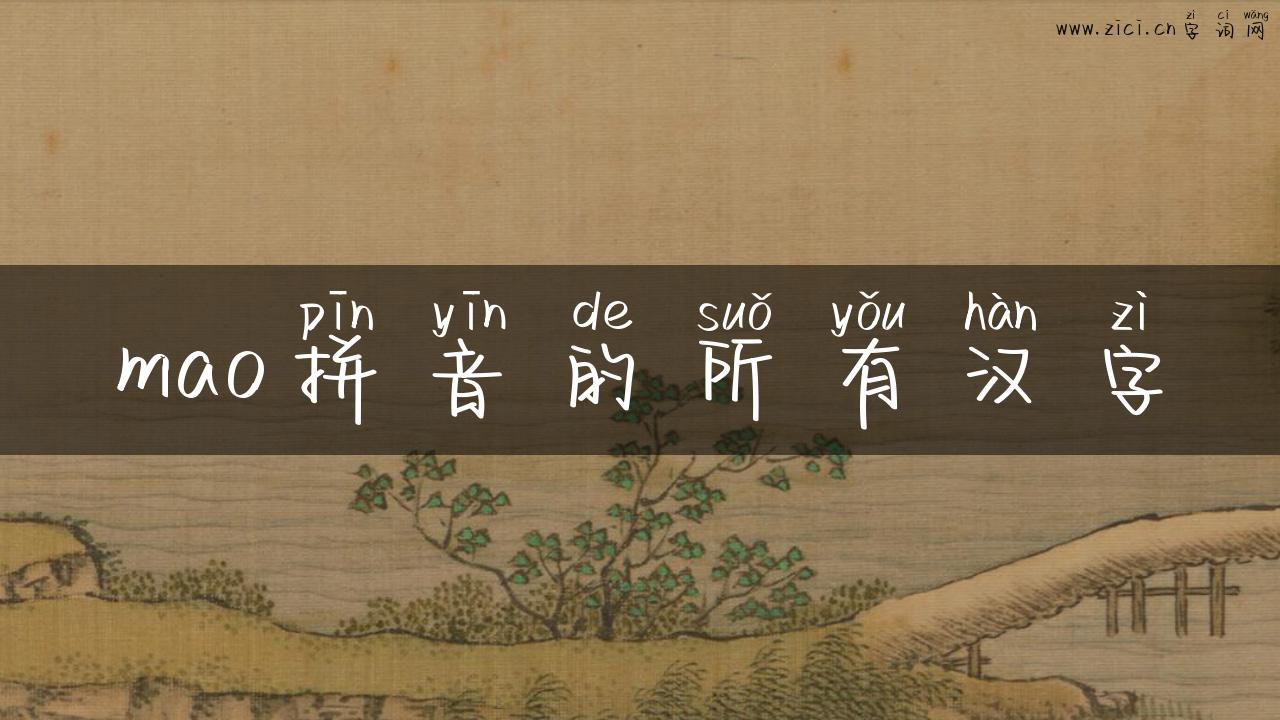 zì cí wǎng
www.zici.cn字词网
pīn yīn de suǒ yǒu hàn zì
mao拼音的所有汉字